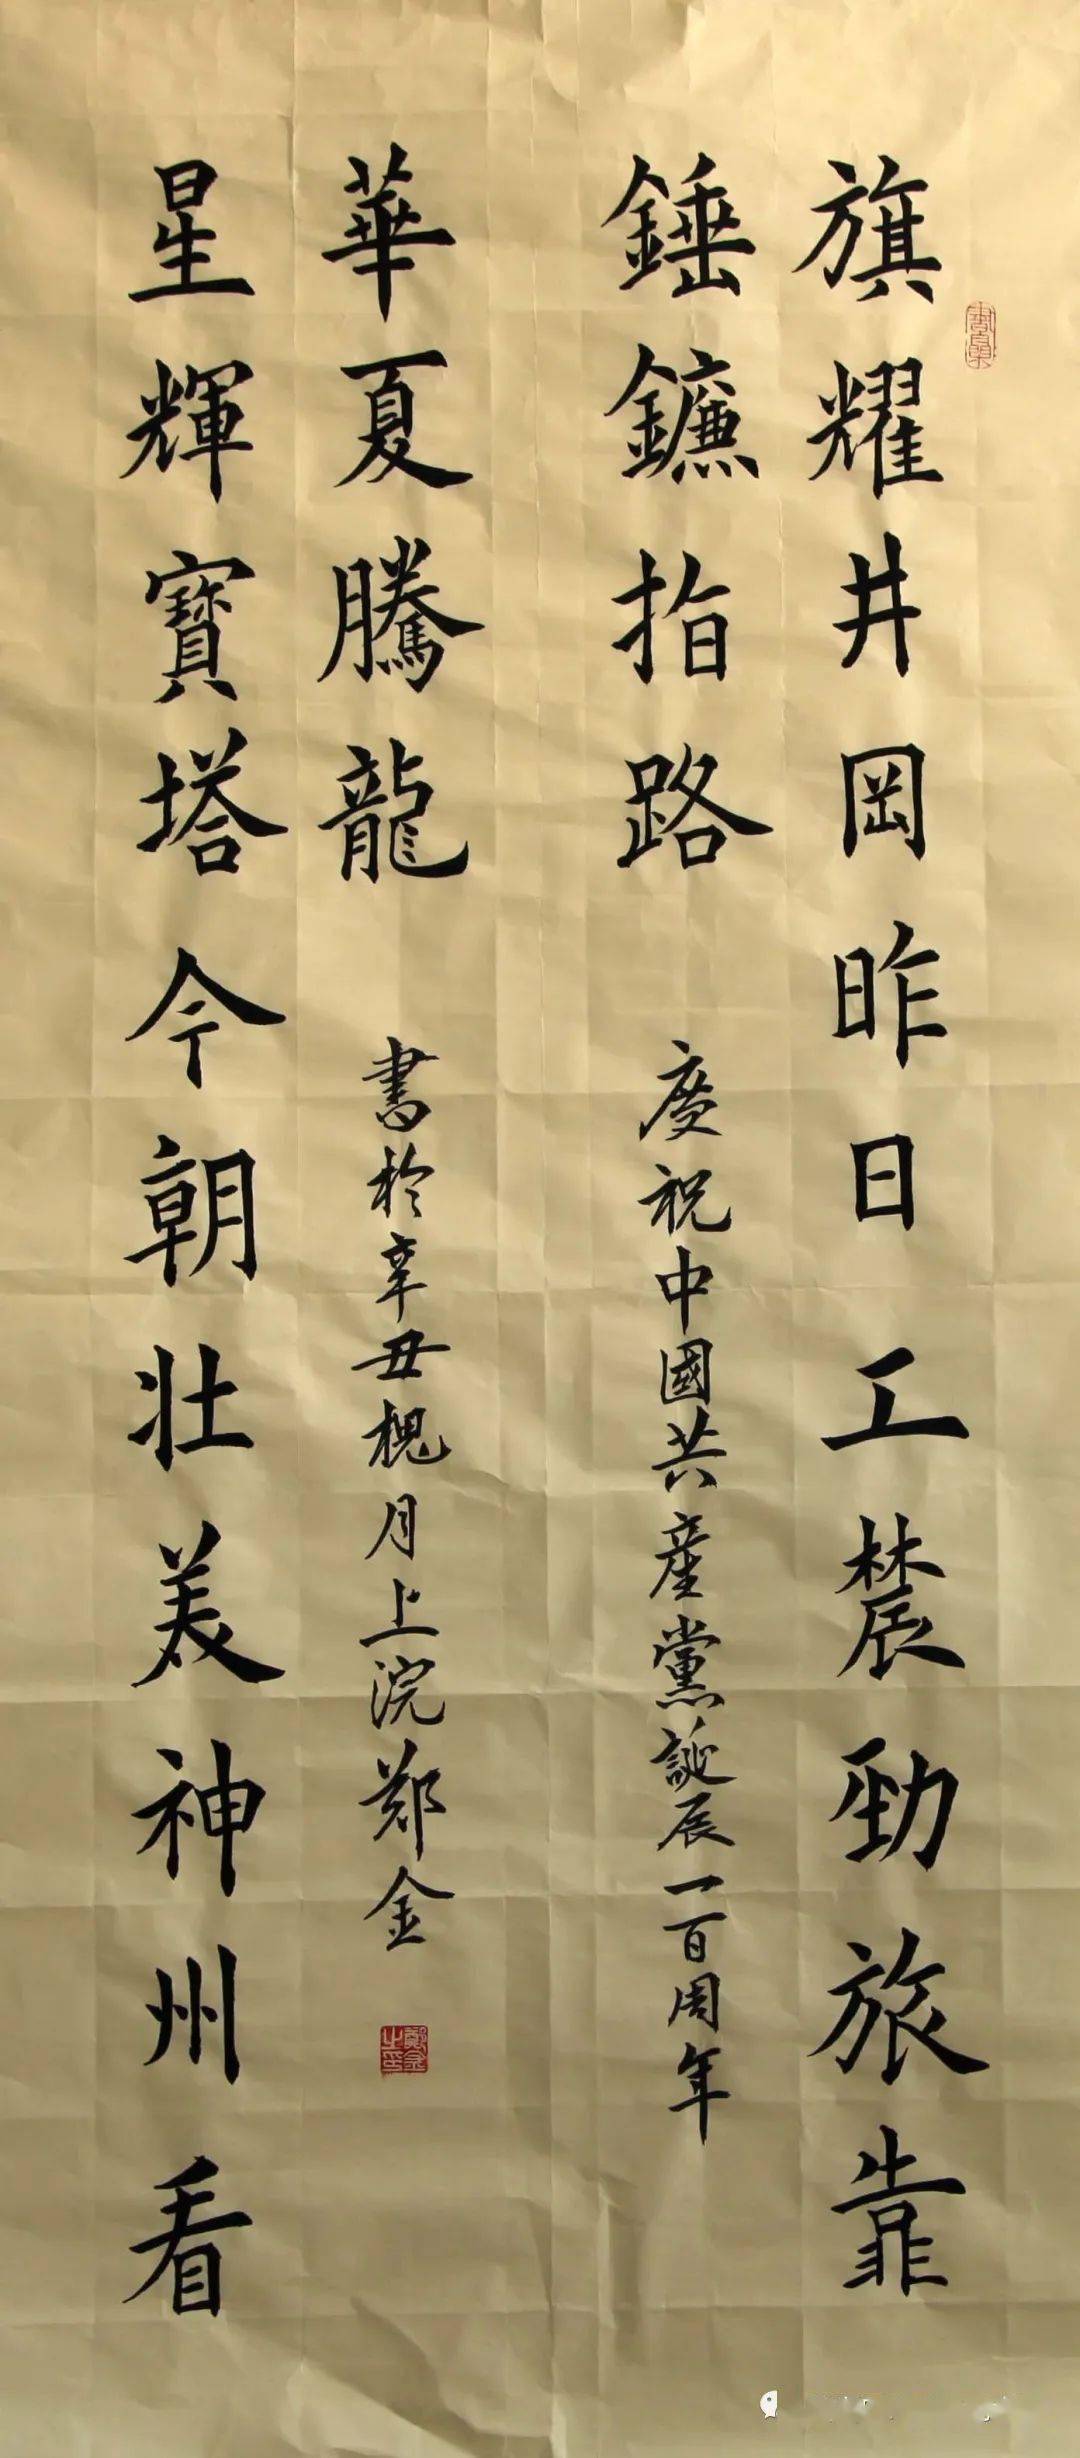 旗耀井岡昨日工辳勁旅靠
錘鐮指路
慶祝中國共產黨誕辰一百周年
星輝寶塔今朝壯美神州看
華夏騰龍
書於辛丑槐月上浣郑金
鄭金之印